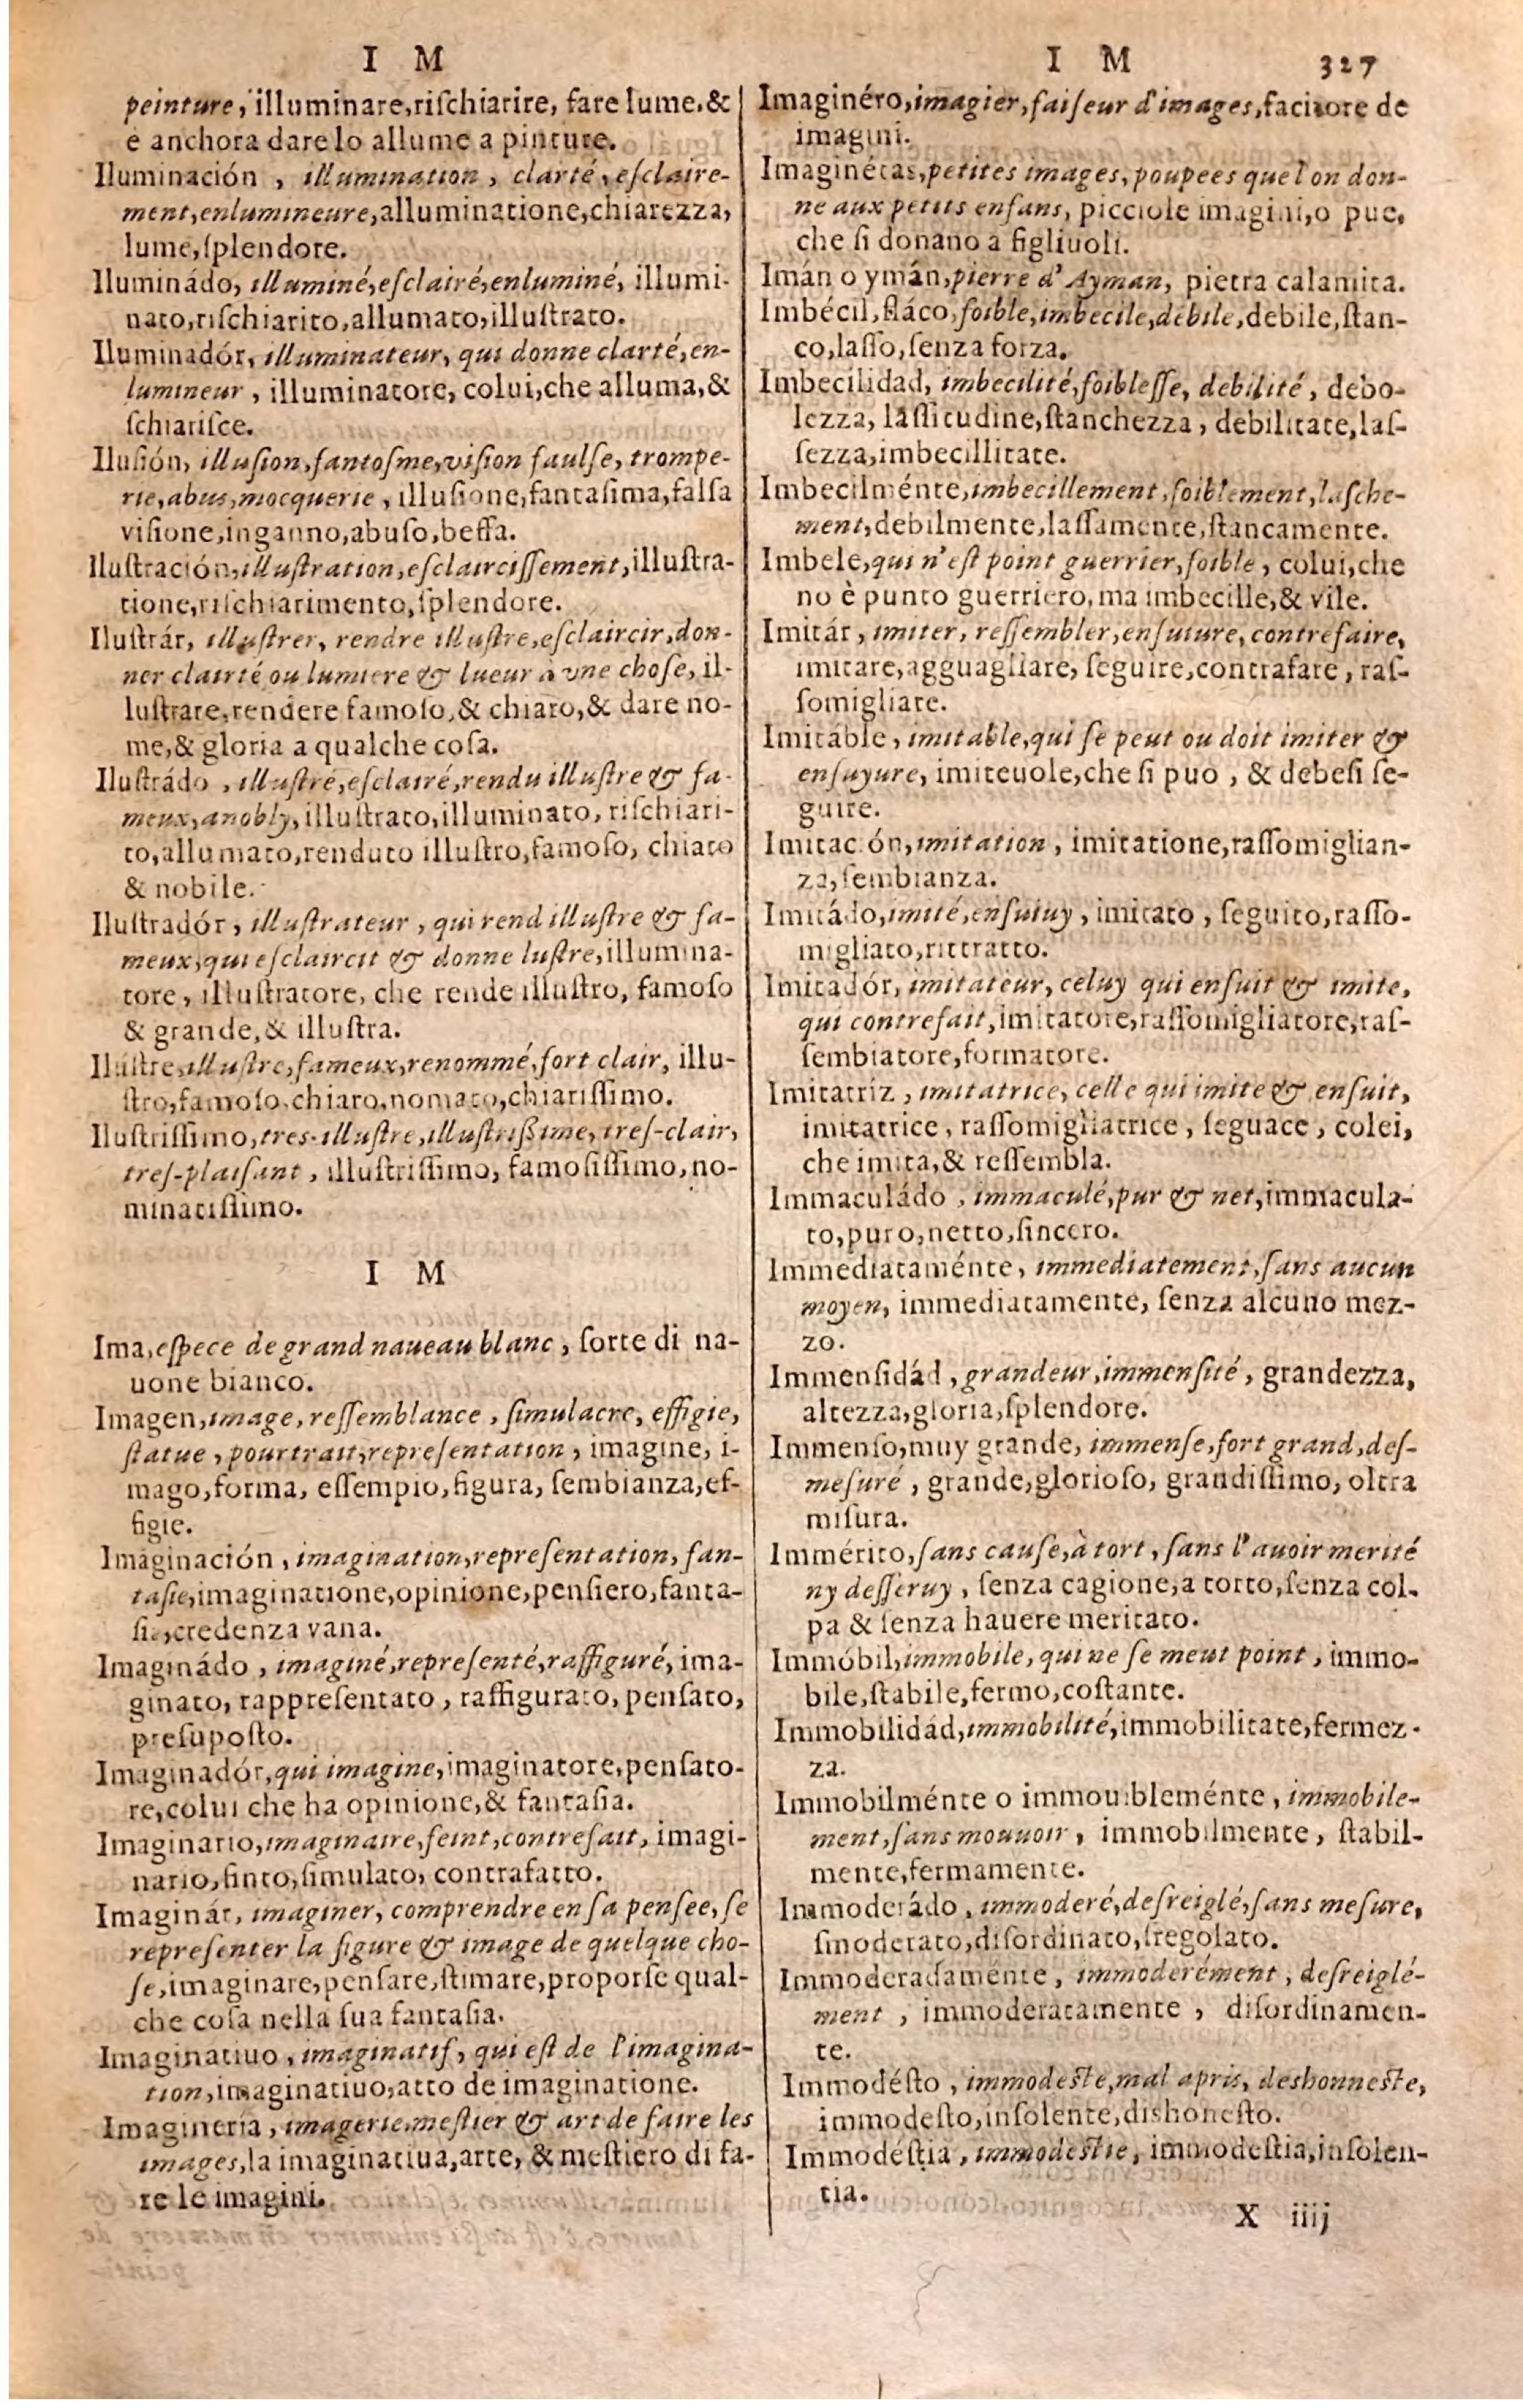 I M
peinture, illuminare,riſchiarire, fare lume,&
e anchora dare lo allume a pinture.
Iluminación , illumination , clarté, eſclaire-
ment,enlumineure,alluminatione,chiarezza,
lume,ſplendore.
Iluminádo, illuminé,eſclairé,enluminé, illumi-
nato,riſchiarito,allumato,illuſtrato.
Iluminadór, illuminateur, qui donne clarté,en-
lumineur , illuminatore, colui,che alluma,&
ſchiariſce.
Iluſión, illuſion,fantoſme,viſion faulſe, trompe-
rie,abus,mocquerie , illuſione,fantaſima,falſa
viſione,inganno,abuſo,beffa.
Iluſtración,illuſtration,eſclairciſſement,illuſtra-
tione,riſchiarimento,ſplendore.
Iluſtrár, illuſtrer, rendre illuſtre,eſclaircir,don-
ner clairté ou lumiere & lueur à vne choſe, il-
luſtrare,rendere famoſo,& chiaro,& dare no-
me,& gloria a qualche coſa.
Iluſtrádo , illuſtré,eſclairé,rendu illuſtre & fa-
meux,anobly,illuſtrato,illuminato, riſchiari-
to,allumato,renduto illuſtro,famoſo, chiaro
& nobile.
Iluſtradór , illuſtrateur , qui rend illuſtre & fa-
meux,qui eſclaircit & donne luſtre,illumina-
tore, illuſtratore, che rende illuſtro, famoſo
& grande,& illuſtra.
Ilúſtre,illuſtre,fameux,renommé,fort clair, illu-
ſtro,famoſo,chiaro,nomato,chiariſſimo.
Iluſtriſſimo,tres-illuſtre,illuſtriſsime,treſ-clair,
treſ-plaiſant , illuſtriſſimo, famoſiſſimo,no-
minatiſſimo.
I M
Ima,eſpece de grand naueau blanc , ſorte di na-
uone bianco.
Imagen,image,reſſemblance , ſimulacre, effigie,
ſtatue , pourtrait,repreſentation , imagine, i-
mago,forma, eſſempio,figura, ſembianza,ef-
figie.
Imaginación , imagination,repreſentation, fan-
taſie,imaginatione,opinione,penſiero,fanta-
ſia,credenza vana.
Imaginádo , imaginé,repreſenté,raffiguré, ima-
ginato, rappreſentato , raffigurato, penſato,
preſupoſto.
Imaginadór,qui imagine,imaginatore,penſato-
re,colui che ha opinione,& fantaſia.
Imaginario,imaginaire,feint,contrefait, imagi-
nario,finto,ſimulato, contrafatto.
Imaginár, imaginer, comprendre en ſa penſee, ſe
repreſenter la figure & image de quelque cho-
ſe,imaginare,penſare,ſtimare,proporſe qual-
che coſa nella ſua fantaſia.
Imaginatiuo , imaginatif, qui eſt de l'imagina-
tion,imaginatiuo,atto de imaginatione.
Imaginería , imagerie,meſtier & art de faire les
images,la imaginatiua,arte, & meſtiero di fa-
re le imagini.
I M 327
Imaginéro,imagier,faiſeur d'images,facitore de
imagini.
Imaginétas,petites images, poupees que l'on don-
ne aux petits enfans, picciole imagini,o pue,
che ſi donano a figliuoli.
Imán o ymán,pierre d'Ayman, pietra calamita.
Imbécil, fláco,foible,imbecile,debile,debile,ſtan-
co,laſſo,ſenza forza.
Imbecilidad, imbecilité,foibleſſe, debilité , debo-
lezza, laſſitudine,ſtanchezza , debilitate,laſ-
ſezza,imbecillitate.
Imbecilménte,imbecillement,foiblement,laſche-
ment,debilmente,laſſamente,ſtancamente.
Imbele,qui n'eſt point guerrier,foible , colui,che
no è punto guerriero,ma imbecille,& vile.
Imitár , imiter, reſſembler,enſuiure,contrefaire,
imitare,agguagliare, ſeguire,contrafare , raſ-
ſomigliare.
Imitáble , imitable,qui ſe peut ou doit imiter &
enſuyure, imiteuole,che ſi puo , & debeſi ſe-
guire.
Imitación,imitation , imitatione,raſſomiglian-
za,ſembianza.
Imitádo,imité,enſuiuy , imitato , ſeguito,raſſo-
migliato,rittratto.
Imitadór, imitateur, celuy qui enſuit & imite,
qui contrefait,imitatore,raſſomigliatore,raſ-
ſembiatore,formatore.
Imitatriz , imitatrice, celle qui imite & enſuit,
imitatrice , raſſomigliatrice , ſeguace , colei,
che imita,& reſſembla.
Immaculádo , immaculé,pur & net,immacula-
to,puro,netto,ſincero.
Immediataménte, immediatement,ſans aucun
moyen, immediatamente, ſenza alcuno mez-
zo.
Immenſidád , grandeur,immenſité , grandezza,
altezza,gloria,ſplendore.
Immenſo,muy grande, immenſe,fort grand,deſ-
meſuré , grande,glorioſo, grandiſſimo, oltra
miſura.
Immérito,ſans cauſe,à tort, ſans l'auoir merité
ny deſſeruy , ſenza cagione,a torto,ſenza col-
pa & ſenza hauere meritato.
Immóbil,immobile, qui ne ſe meut point , immo-
bile,ſtabile,fermo,coſtante.
Immobilidád,immobilité,immobilitate,fermez-
za.
Immobilménte o immouibleménte , immobile-
ment,ſans mouuoir, immobilmente, ſtabil-
mente,fermamente.
Immoderádo , immoderé,deſreiglé,ſans meſure,
ſmoderato,diſordinato,ſregolato.
Immoderadaménte , immoderément , deſreiglé-
ment , immoderatamente , diſordinamen-
te.
Immodéſto , immodeſte,mal apris, deshonneſte,
immodeſto,inſolente,dishoneſto.
Immodéſtia , immodeſtie, immodeſtia,inſolen-
tia.
X iiij